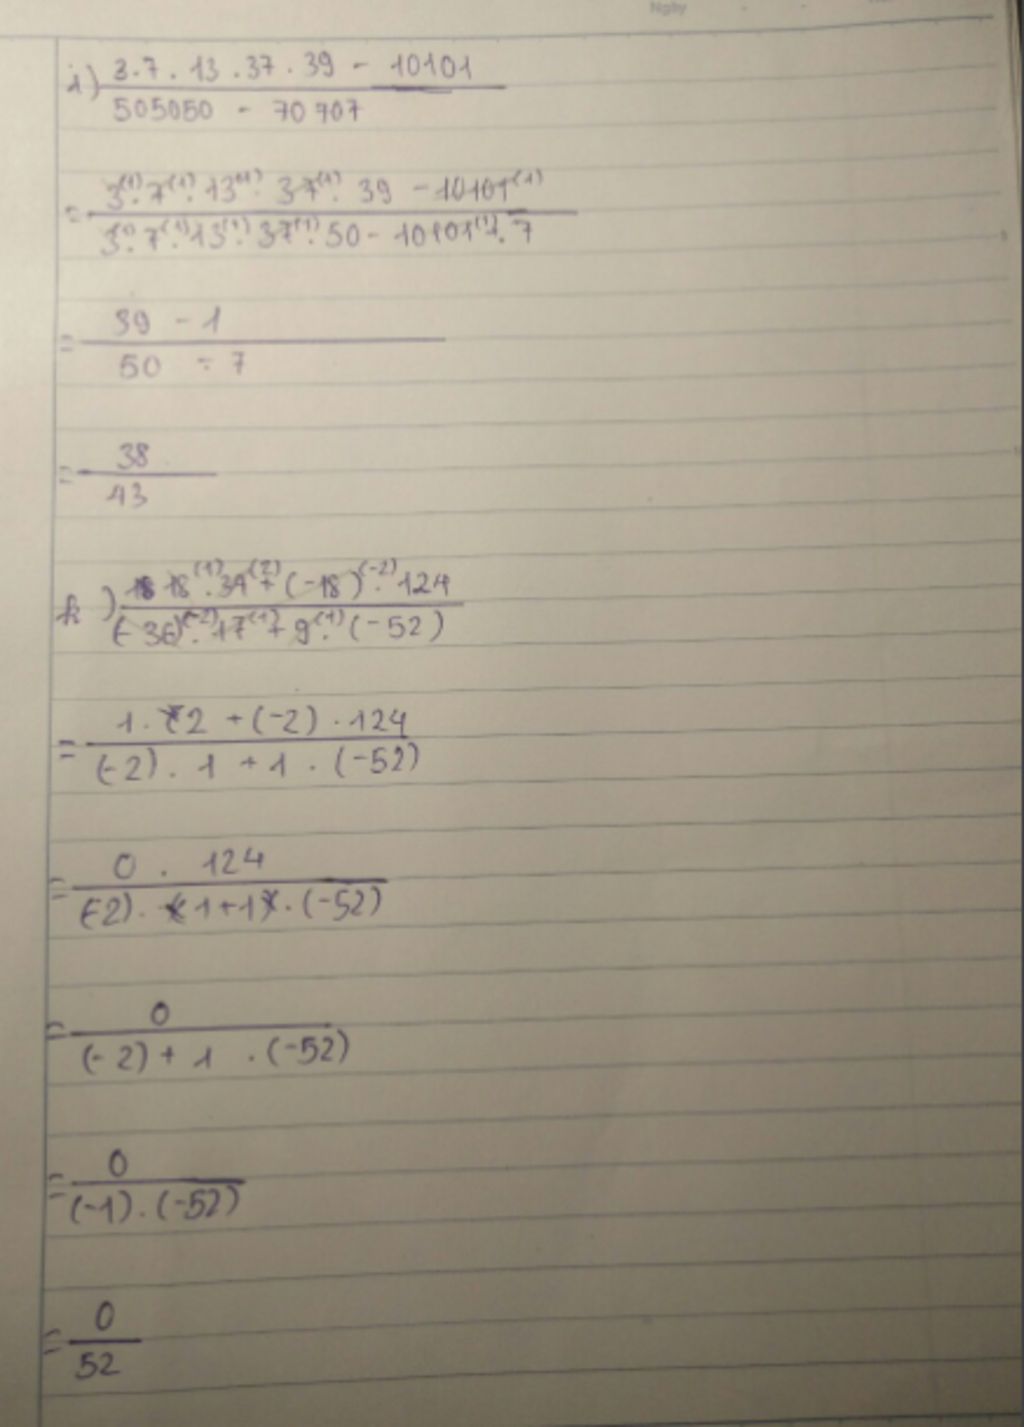 Ngày
i) 3.7.13.37.39 - 10101
505050 - 70707
= 3⁽¹⁾.7⁽¹⁾.13⁽¹⁾.37⁽¹⁾.39 - 10101⁽¹⁾
3⁽¹⁾.7⁽¹⁾.13⁽¹⁾.37⁽¹⁾.50 - 10101⁽¹⁾.7
= 39 - 1
50 - 7
= 38
43
k) 18⁽¹⁾.34⁽²⁾ + (-18)⁽⁻²⁾.124
(-36)⁽⁻²⁾.17⁽¹⁾ + 9⁽¹⁾.(-52)
= 1.2 + (-2).124
(-2).1 + 1.(-52)
= 0.124
(-2).1+1.(-52)
= 0
(-2) + 1.(-52)
= 0
(-1).(-52)
= 0
52